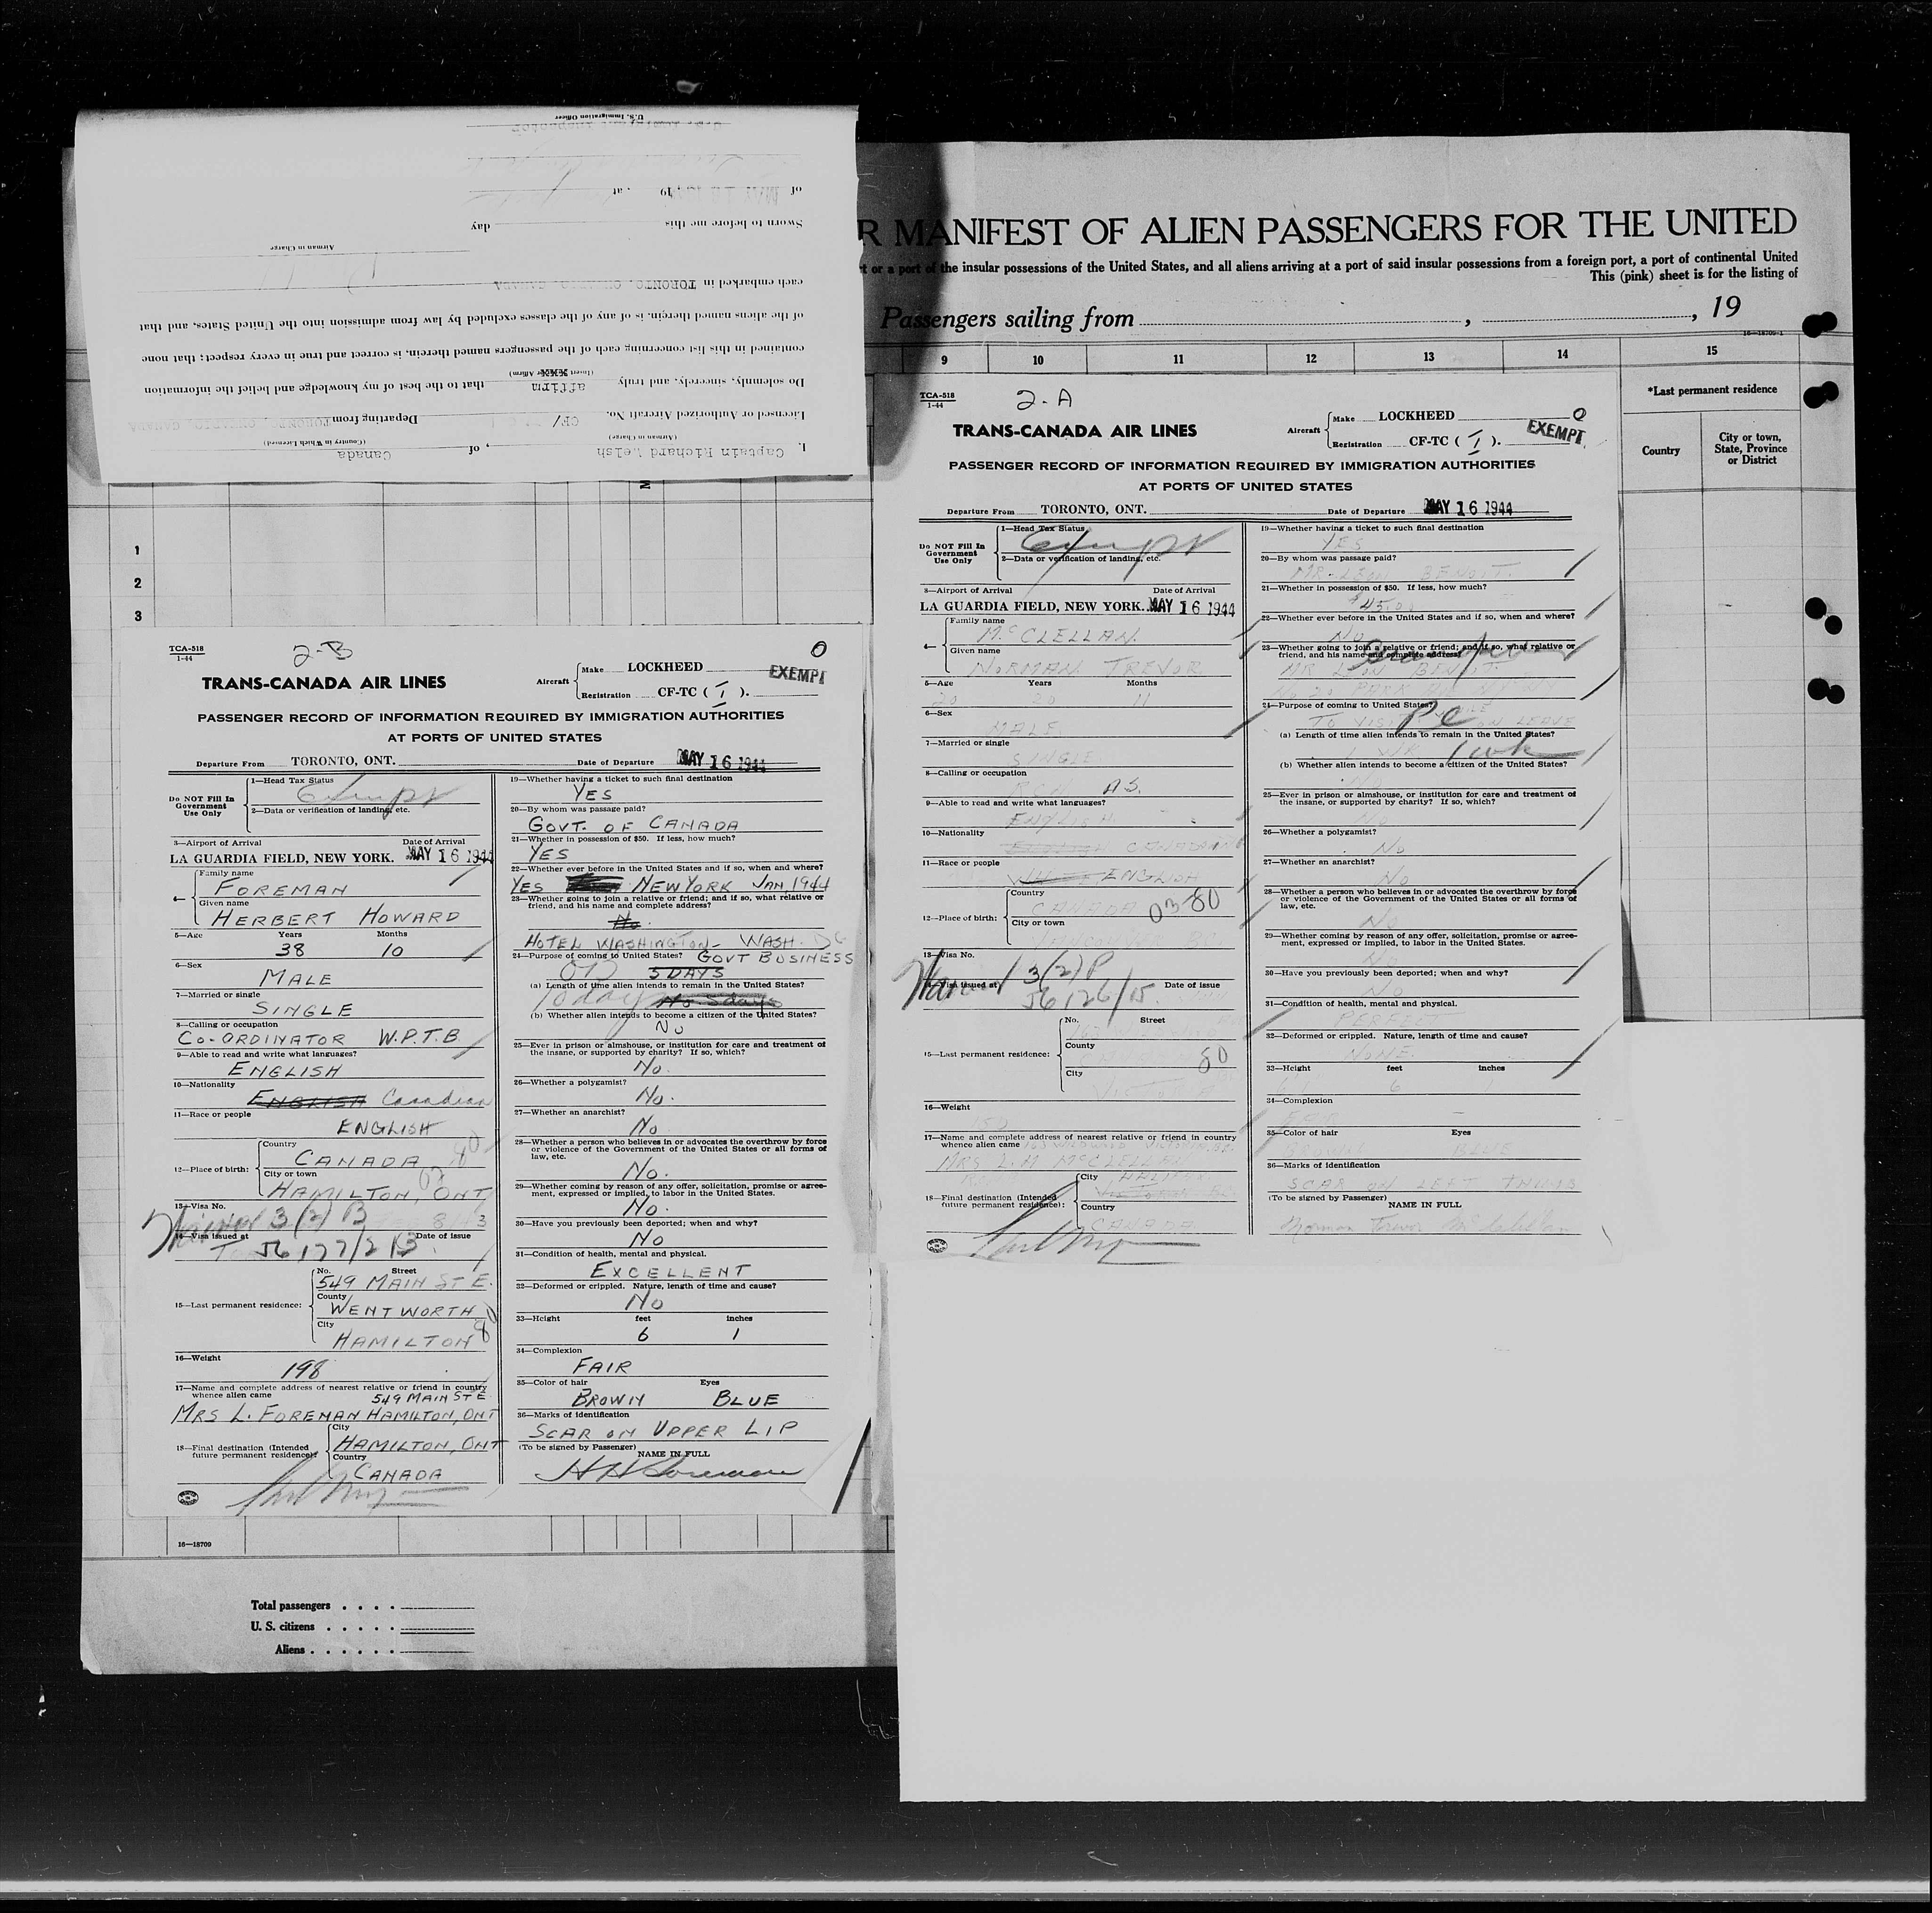 U.S. Immigration Officer
of MAY 1944, at
Sworn to before me this day
Airman in Charge
each embarked in TORONTO, ONTARIO, CANADA
of the aliens named therein, is of any of the classes excluded by law from admission into the United States, and that
contained in this list concerning each of the passengers named therein, is correct and true in every respect; that none
(Insert or Affirm)
Do solemnly, sincerely, and truly affirm that to the best of my knowledge and belief the information
Licensed or Authorized Aircraft No. CF/ Departing from TORONTO, ONTARIO, CANADA
(Airman in Charge) (Country in Which Licensed)
I, Captain Richard Welsh, of Canada
R MANIFEST OF ALIEN PASSENGERS FOR THE UNITED
or a port of the insular possessions of the United States, and all aliens arriving at a port of said insular possessions from a foreign port, a port of continental United
This (pink) sheet is for the listing of
Passengers sailing from , , 19
16—18709-1
9 10 11 12 13 14 15
*Last permanent residence
Country
City or town, State, Province or District
1
2
3
TCA-518
1-44
2-B
0
EXEMPT
TRANS-CANADA AIR LINES
Aircraft
Make LOCKHEED
Registration CF-TC ( I ).
PASSENGER RECORD OF INFORMATION REQUIRED BY IMMIGRATION AUTHORITIES
AT PORTS OF UNITED STATES
Departure From TORONTO, ONT. Date of Departure MAY 16 1944
Do NOT Fill In Government Use Only
1—Head Tax Status
Exempt
2—Data or verification of landing, etc.
3—Airport of Arrival Date of Arrival
LA GUARDIA FIELD, NEW YORK. MAY 16 1944
4—
Family name
FOREMAN
Given name
HERBERT HOWARD
5—Age Years Months
38 10
6—Sex
MALE
7—Married or single
SINGLE
8—Calling or occupation
CO-ORDINATOR W.P.T.B
9—Able to read and write what languages?
ENGLISH
10—Nationality
ENGLISH Canadian
11—Race or people
ENGLISH
12—Place of birth:
Country
CANADA
City or town
HAMILTON, ONT
13—Visa No.
3(2) B
14—Visa issued at Date of issue
56177/213
15—Last permanent residence:
No. Street
549 MAIN ST E.
County
WENTWORTH
City
HAMILTON 80
16—Weight
198
17—Name and complete address of nearest relative or friend in country
whence alien came 549 MAIN ST E
MRS L. FOREMAN HAMILTON, ONT
18—Final destination (Intended future permanent residence):
City
HAMILTON, ONT
Country
CANADA
19—Whether having a ticket to such final destination
YES
20—By whom was passage paid?
GOVT. OF CANADA
21—Whether in possession of $50. If less, how much?
YES
22—Whether ever before in the United States and if so, when and where?
YES NEW YORK JAN, 1944
23—Whether going to join a relative or friend; and if so, what relative or
friend, and his name and complete address?
No.
HOTEL WASHINGTON - WASH. DC
24—Purpose of coming to United States? GOVT BUSINESS
5 DAYS
(a) Length of time alien intends to remain in the United States?
10 days No. 5 days
(b) Whether alien intends to become a citizen of the United States?
No
25—Ever in prison or almshouse, or institution for care and treatment of
the insane, or supported by charity? If so, which?
No.
26—Whether a polygamist?
No.
27—Whether an anarchist?
No
28—Whether a person who believes in or advocates the overthrow by force
or violence of the Government of the United States or all forms of
law, etc.
No.
29—Whether coming by reason of any offer, solicitation, promise or agree-
ment, expressed or implied, to labor in the United States.
No.
30—Have you previously been deported; when and why?
No
31—Condition of health, mental and physical.
EXCELLENT
32—Deformed or crippled. Nature, length of time and cause?
No
33—Height feet inches
6 1
34—Complexion
FAIR
35—Color of hair Eyes
BROWN BLUE
36—Marks of identification
SCAR ON UPPER LIP
(To be signed by Passenger)
NAME IN FULL
H H Foreman
16—18709
Total passengers . . . .
U. S. citizens . . . . .
Aliens . . . . . .
TCA-518
1-44
2-A
0
EXEMPT
TRANS-CANADA AIR LINES
Aircraft
Make LOCKHEED
Registration CF-TC ( I ).
PASSENGER RECORD OF INFORMATION REQUIRED BY IMMIGRATION AUTHORITIES
AT PORTS OF UNITED STATES
Departure From TORONTO, ONT. Date of Departure MAY 16 1944
Do NOT Fill In Government Use Only
1—Head Tax Status
Exempt
2—Data or verification of landing, etc.
3—Airport of Arrival Date of Arrival
LA GUARDIA FIELD, NEW YORK. MAY 16 1944
4—
Family name
McCLELLAN.
Given name
NORMAN TREVOR
5—Age Years Months
20 20 11
6—Sex
MALE
7—Married or single
SINGLE
8—Calling or occupation
9—Able to read and write what languages?
ENGLISH
10—Nationality
CANADIAN
11—Race or people
WHITE ENGLISH
12—Place of birth:
Country
CANADA 03-80
City or town
13—Visa No.
3(2)P
14—Visa issued at Date of issue
56126/15
15—Last permanent residence:
No. Street
County
80
City
VICTORIA
16—Weight
150
17—Name and complete address of nearest relative or friend in country
whence alien came
MRS L. M McCLELLAN
18—Final destination (Intended future permanent residence):
City
HALIFAX
Country
CANADA
19—Whether having a ticket to such final destination
YES
20—By whom was passage paid?
MR. LEON BENOIT.
21—Whether in possession of $50. If less, how much?
$45.00
22—Whether ever before in the United States and if so, when and where?
No
23—Whether going to join a relative or friend; and if so, what relative or
friend, and his name and complete address?
MR LEON
24—Purpose of coming to United States?
TO VISIT ON LEAVE
(a) Length of time alien intends to remain in the United States?
1 WK 1 wk
(b) Whether alien intends to become a citizen of the United States?
No
25—Ever in prison or almshouse, or institution for care and treatment of
the insane, or supported by charity? If so, which?
No
26—Whether a polygamist?
No
27—Whether an anarchist?
No
28—Whether a person who believes in or advocates the overthrow by force
or violence of the Government of the United States or all forms of
law, etc.
No
29—Whether coming by reason of any offer, solicitation, promise or agree-
ment, expressed or implied, to labor in the United States.
No
30—Have you previously been deported; when and why?
No
31—Condition of health, mental and physical.
PERFECT
32—Deformed or crippled. Nature, length of time and cause?
NONE.
33—Height feet inches
6
34—Complexion
FAIR
35—Color of hair Eyes
BROWN BLUE
36—Marks of identification
SCAR ON LEFT THUMB
(To be signed by Passenger)
NAME IN FULL
Norman Trevor McClellan